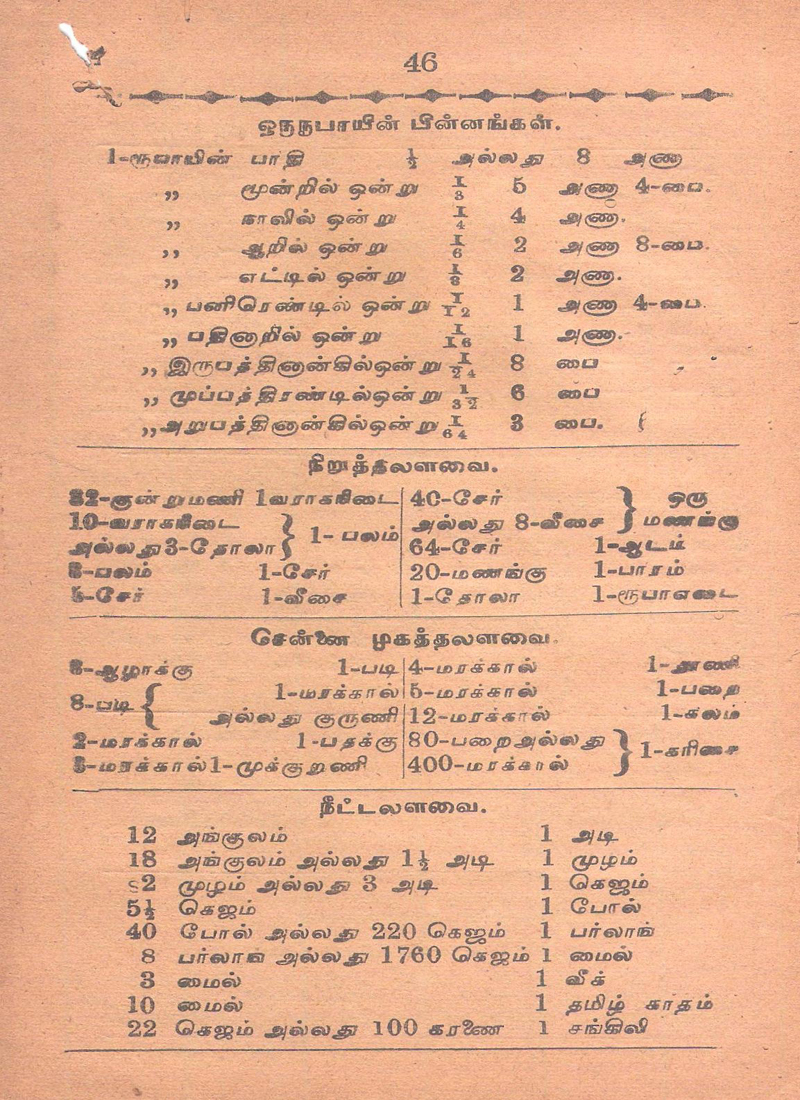 46
ஒருரூபாயின் பின்னங்கள்.
1-ரூபாயின் பாதி ½ அல்லது 8 அணா
,, மூன்றில் ஒன்று 1/3 5 அணா 4-பை.
,, நாலில் ஒன்று 1/4 4 அணா.
,, ஆறில் ஒன்று 1/6 2 அணா 8-பை.
,, எட்டில் ஒன்று 1/8 2 அணா.
,, பனிரெண்டில் ஒன்று 1/12 1 அணா 4-பை.
,, பதினாறில் ஒன்று 1/16 1 அணா.
,, இருபத்தினான்கில்ஒன்று 1/24 8 பை
,, முப்பத்திரண்டில்ஒன்று 1/32 6 பை
,, அறுபத்தினான்கில்ஒன்று 1/64 3 பை.
நிறுத்தலளவை.
32-குன்றுமணி 1வராகனிடை
10-வராகனிடை
அல்லது3-தோலா } 1-பலம்
8-பலம் 1-சேர்
5-சேர் 1-வீசை
40-சேர்
அல்லது 8-வீசை } ஒரு மணங்கு
64-சேர் 1-ஆடம்
20-மணங்கு 1-பாரம்
1-தோலா 1-ரூபாஎடை
சென்னை முகத்தலளவை.
8-ஆழாக்கு 1-படி
8-படி { 1-மரக்கால்
அல்லது குருணி
2-மரக்கால் 1-பதக்கு
3-மரக்கால் 1-முக்குறணி
4-மரக்கால் 1-தூணி
5-மரக்கால் 1-பறை
12-மரக்கால் 1-கலம்
80-பறைஅல்லது
400-மரக்கால் } 1-கரிசை
நீட்டலளவை.
12 அங்குலம் 1 அடி
18 அங்குலம் அல்லது 1½ அடி 1 முழம்
2 முழம் அல்லது 3 அடி 1 கெஜம்
5½ கெஜம் 1 போல்
40 போல் அல்லது 220 கெஜம் 1 பர்லாங்
8 பர்லாங் அல்லது 1760 கெஜம் 1 மைல்
3 மைல் 1 லீக்
10 மைல் 1 தமிழ் காதம்
22 கெஜம் அல்லது 100 கரணை 1 சங்கிலி